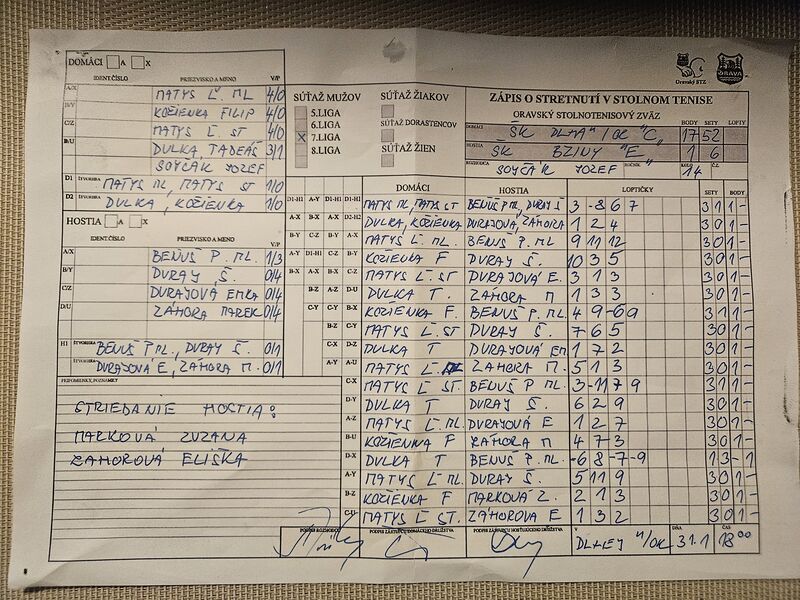 DOMÁCI A X
IDENT.ČÍSLO PRIEZVISKO A MENO V/P
A/X MATYS Ľ. ML 4/0
B/Y KOŽIENKA FILIP 4/0
C/Z MATYS Ľ. ST 4/0
D/U DULKA, TADEÁŠ 3/1
SOYČÁK JOZEF
D1 ŠTVORHRA MATYS ML, MATYS ST 1/0
D2 ŠTVORHRA DULKA, KOŽIENKA 1/0
HOSTIA A X
IDENT.ČÍSLO PRIEZVISKO A MENO V/P
A/X BENUŠ P. ML. 1/3
B/Y DURAY Š. 0/4
C/Z DURAJOVÁ EMKA 0/4
D/U ZÁHORA MAREK 0/4
H1 ŠTVORHRA BENUŠ P ML., DURAY Š. 0/1
ŠTVORHRA DURAJOVÁ E, ZÁHORA M. 0/1
PRIPOMIENKY, POZNÁMKY
STRIEDANIE HOSTIA:
MARKOVÁ ZUZANA
ZAHOROVÁ ELIŠKA
SÚŤAŽ MUŽOV
5.LIGA
6.LIGA
X 7.LIGA
8.LIGA
SÚŤAŽ ŽIAKOV
SÚŤAŽ DORASTENCOV
SÚŤAŽ ŽIEN
Oravský STZ
ORAVA
ZÁPIS O STRETNUTÍ V STOLNOM TENISE
ORAVSKÝ STOLNOTENISOVÝ ZVÄZ
BODY SETY LOPTY
DOMÁCI ŠK DLHÁ /OR "C" 17 52
HOSTIA ŠK BZINY "E" 1 6
ROZHODCA SOYČÁK JOZEF ROČNÍK KOLO 14 Č.Z.
DOMÁCI HOSTIA LOPTIČKY SETY BODY
D1-H1 A-Y D1-H1 D1-H1 MATYS ML, MATYS ST BENUŠ P ML, DURAY Š 3 -8 6 7 3 1 1 -
A-X B-X A-X D2-H2 DULKA, KOŽIENKA DURAJOVÁ, ZÁHORA 1 2 4 3 0 1 -
B-Y C-Z B-Y A-X MATYS Ľ. ML. BENUŠ P. ML 9 11 12 3 0 1 -
A-Y D1-H1 C-Z B-Y KOŽIENKA F DURAY Š. 10 3 5 3 0 1 -
B-X A-X B-X C-Z MATYS Ľ. ST DURAJOVÁ E. 3 1 3 3 0 1 -
B-Z A-Z D-U DULKA T. ZÁHORA M 1 3 3 3 0 1 -
C-Y C-Y B-X KOŽIENKA F. BENUŠ P. ML. 4 9 -6 9 3 1 1 -
B-Z C-Y MATYS Ľ. ST DURAY Š. 7 6 5 3 0 1 -
C-X D-Z DULKA T DURAYOVÁ EM 1 7 2 3 0 1 -
A-Y A-U MATYS Ľ. ZÁHORA M. 5 1 3 3 0 1 -
C-X MATYS Ľ ST. BENUŠ P ML. 3 -11 7 9 3 1 1 -
D-Y DULKA T DURAY Š. 6 2 9 3 0 1 -
A-Z MATYS Ľ. ML. DURAYOVÁ E 1 2 7 3 0 1 -
B-U KOŽIENKA F ZÁHORA M 4 7 3 3 0 1 -
D-X DULKA T BENUŠ P. ML. -6 8 -7 -9 1 3 - 1
A-Y MATYS Ľ ML DURAY Š. 5 11 9 3 0 1 -
B-Z KOŽIENKA F MARKOVÁ Z. 2 1 3 3 0 1 -
C-U MATYS Ľ ST. ZÁHOROVA E 1 3 2 3 0 1 -
PODPIS ROZHODCU PODPIS ZÁSTUPCU DOMÁCEHO DRUŽSTVA PODPIS ZÁSTUPCU HOSŤUJÚCEHO DRUŽSTVA V DLHEJ n/OR. DŇA 31.1 ČAS 18 00